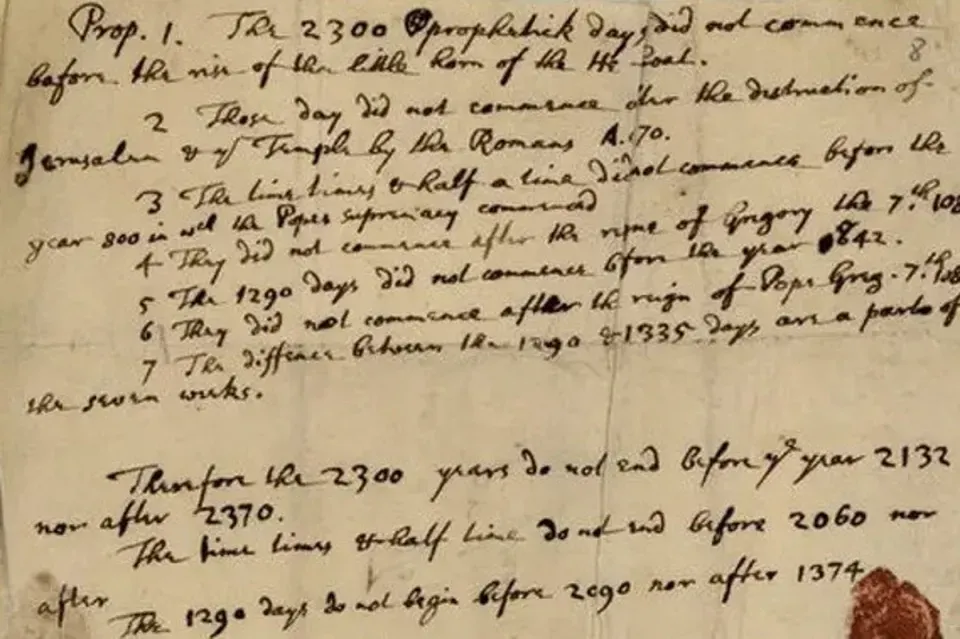 Prop. 1. The 2300 prophetick days did not commence
before the rise of the little horn of the He Goat.
8
2 Those day did not commence after the destruction of
Jerusalem & yͤ Temple by the Romans A. 70.
3 The time times & half a time did not commence before the
year 800 in wch the Popes supremacy commenced
4 They did not commence after the reigne of Gregory the 7.th 108
5 The 1290 days did not commence before the year 842.
6 They did not commence after the reign of Pope Greg. 7.th 108
7 The diffence between the 1290 & 1335 days are a parts of
the seven weeks.
Therefore the 2300 years do not end before yͤ year 2132
nor after 2370.
The time times & half time do not end before 2060 nor
after
The 1290 days do not begin before 2090 nor after 1374